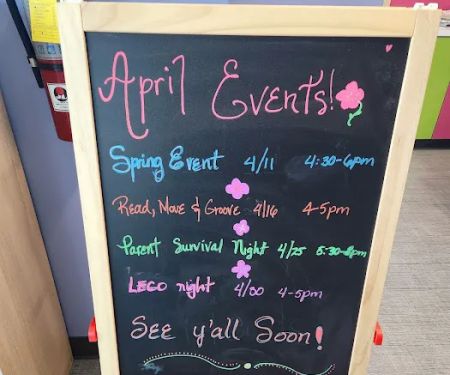 April Events!
Spring Event 4/11 4:30-6pm
Read, Move & Groove 4/16 4-5pm
Parent Survival Night 4/25 5:30-8pm
LEGO night 4/30 4-5pm
SEE y'all Soon!